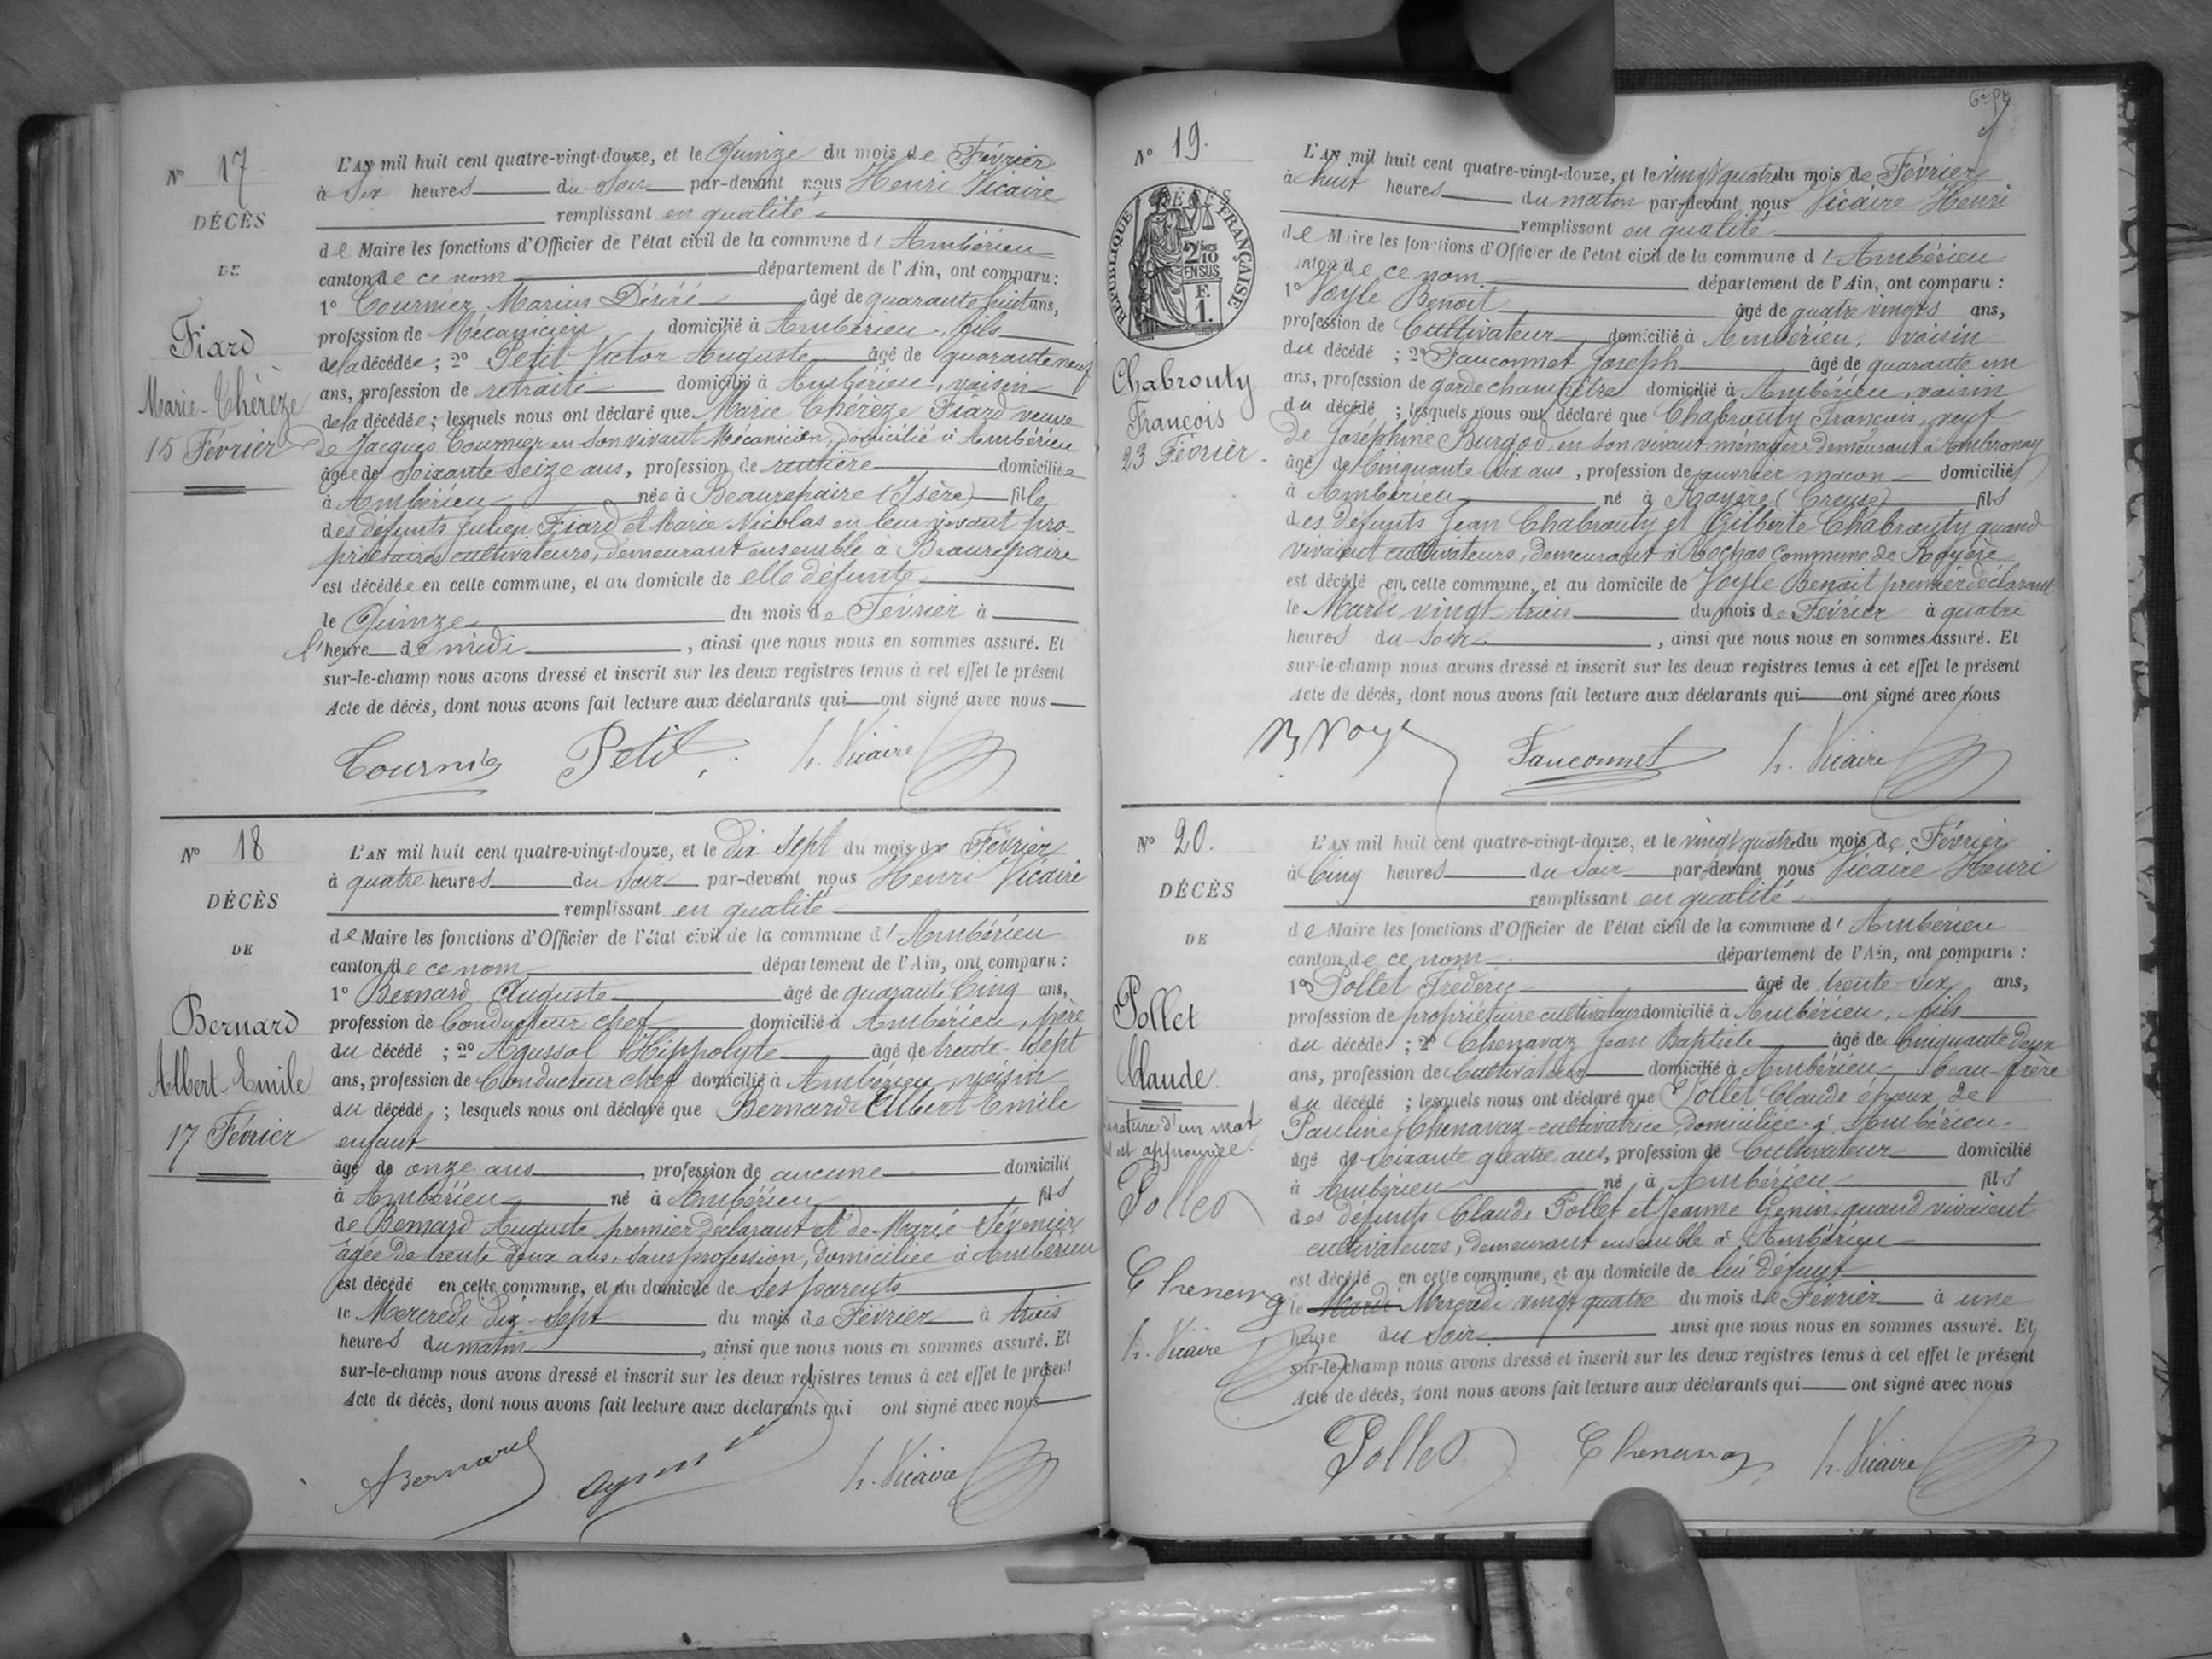 N° 17
DÉCÈS
DE
Fiard
Marie-Thérèze
15 Février
L'AN mil huit cent quatre-vingt-douze, et le Quinze du mois de Février
à Six heures du Soir par-devant nous Henri Vicaire
remplissant en qualité
de Maire les fonctions d'Officier de l'état civil de la commune d'Ambérieu
canton de ce nom département de l'Ain, ont comparu :
1° Cournier Marius Désiré âgé de quarante huit ans,
profession de Mécanicien domicilié à Ambérieu, fils
de la décédée ; 2° Petit Victor Auguste âgé de quarante neuf
ans, profession de retraité domicilié à Ambérieu, voisin
de la décédée ; lesquels nous ont déclaré que Marie Thérèze Fiard veuve
de Jacques Cournier en son vivant Mécanicien, domicilié à Ambérieu
âgée de Soixante seize ans, profession de rentière domiciliée
à Ambérieu née à Beaurepaire (Isère) fille
des défunts Julien Fiard et Marie Nicolas en leur vivant pro-
priétaires cultivateurs, demeurant ensemble à Beaurepaire
est décédée en cette commune, et au domicile de elle défunte
le Quinze du mois de Février à
l'heure de midi, ainsi que nous nous en sommes assuré. Et
sur-le-champ nous avons dressé et inscrit sur les deux registres tenus à cet effet le présent
Acte de décès, dont nous avons fait lecture aux déclarants qui ont signé avec nous
Cournier Petit h. Vicaire
N° 18
DÉCÈS
DE
Bernard
Albert-Emile
17 Février
L'AN mil huit cent quatre-vingt-douze, et le dix sept du mois de Février
à quatre heures du Soir par-devant nous Henri Vicaire
remplissant en qualité
de Maire les fonctions d'Officier de l'état civil de la commune d'Ambérieu
canton de ce nom département de l'Ain, ont comparu :
1° Bernard Auguste âgé de quarante Cinq ans,
profession de Conducteur chef domicilié à Ambérieu, père
du décédé ; 2° Agussol Hippolyte âgé de trente-sept
ans, profession de Conducteur chef domicilié à Ambérieu, voisin
du décédé ; lesquels nous ont déclaré que Bernard Albert Emile
enfant
âgé de onze ans, profession de aucune domicilié
à Ambérieu né à Ambérieu fils
de Bernard Auguste premier déclarant et de Marie Sévenier
âgée de trente deux ans, sans profession, domiciliée à Ambérieu
est décédé en cette commune, et au domicile de ses parents
le Mercredi dix-sept du mois de Février à trois
heures du matin, ainsi que nous nous en sommes assuré. Et
sur-le-champ nous avons dressé et inscrit sur les deux registres tenus à cet effet le présent
Acte de décès, dont nous avons fait lecture aux déclarants qui ont signé avec nous
ABernard h. Vicaire
N° 19.
RÉPUBLIQUE FRANÇAISE
2/10 EN SUS
F. 1.
Chabrouty
François
23 Février
L'AN mil huit cent quatre-vingt-douze, et le vingt quatre du mois de Février
à huit heures du matin par-devant nous Vicaire Henri
remplissant en qualité
de Maire les fonctions d'Officier de l'état civil de la commune d'Ambérieu
canton de ce nom département de l'Ain, ont comparu :
1° Voyle Benoit âgé de quatre vingts ans,
profession de Cultivateur domicilié à Ambérieu, voisin
du décédé ; 2° Fauconnet Joseph âgé de quarante un
ans, profession de garde champêtre domicilié à Ambérieu, voisin
du décédé ; lesquels nous ont déclaré que Chabrouty François, veuf
de Joséphine Burgod, en son vivant ménagère demeurant à Ambronay
âgé de Cinquante six ans, profession de ouvrier maçon domicilié
à Ambérieu né à Royère (Creuse) fils
des défunts Jean Chabrouty et Gilberte Chabrouty quand
vivaient cultivateurs, demeurant à Rochas commune de Royère
est décédé en cette commune, et au domicile de Voyle Benoit premier déclarant
le Mardi vingt-trois du mois de Février à quatre
heures du soir, ainsi que nous nous en sommes assuré. Et
sur-le-champ nous avons dressé et inscrit sur les deux registres tenus à cet effet le présent
Acte de décès, dont nous avons fait lecture aux déclarants qui ont signé avec nous
Fauconnet h. Vicaire
N° 20.
DÉCÈS
DE
Pollet
Claude.
rature d'un mot
est approuvée.
Pollet
Chenavaz
h. Vicaire
L'AN mil huit cent quatre-vingt-douze, et le vingt quatre du mois de Février
à Cinq heures du Soir par-devant nous Vicaire Henri
remplissant en qualité
de Maire les fonctions d'Officier de l'état civil de la commune d'Ambérieu
canton de ce nom département de l'Ain, ont comparu :
1° Pollet Frédéric âgé de trente-six ans,
profession de propriétaire cultivateur domicilié à Ambérieu, fils
du décédé ; 2° Chenavaz Jean Baptiste âgé de Cinquante deux
ans, profession de Cultivateur domicilié à Ambérieu beau-frère
du décédé ; lesquels nous ont déclaré que Pollet Claude époux de
Pauline Chenavaz cultivatrice domiciliée à Ambérieu
âgé de soixante quatre ans, profession de Cultivateur domicilié
à Ambérieu né à Ambérieu fils
des défunts Claude Pollet et Jeanne Genin quand vivaient
cultivateurs, demeurant ensemble à Ambérieu
est décédé en cette commune, et au domicile de lui défunt
le Mardi Mercredi vingt quatre du mois de Février à une
heure du Soir ainsi que nous nous en sommes assuré. Et
sur-le-champ nous avons dressé et inscrit sur les deux registres tenus à cet effet le présent
Acte de décès, dont nous avons fait lecture aux déclarants qui ont signé avec nous
Pollet Chenavaz h. Vicaire